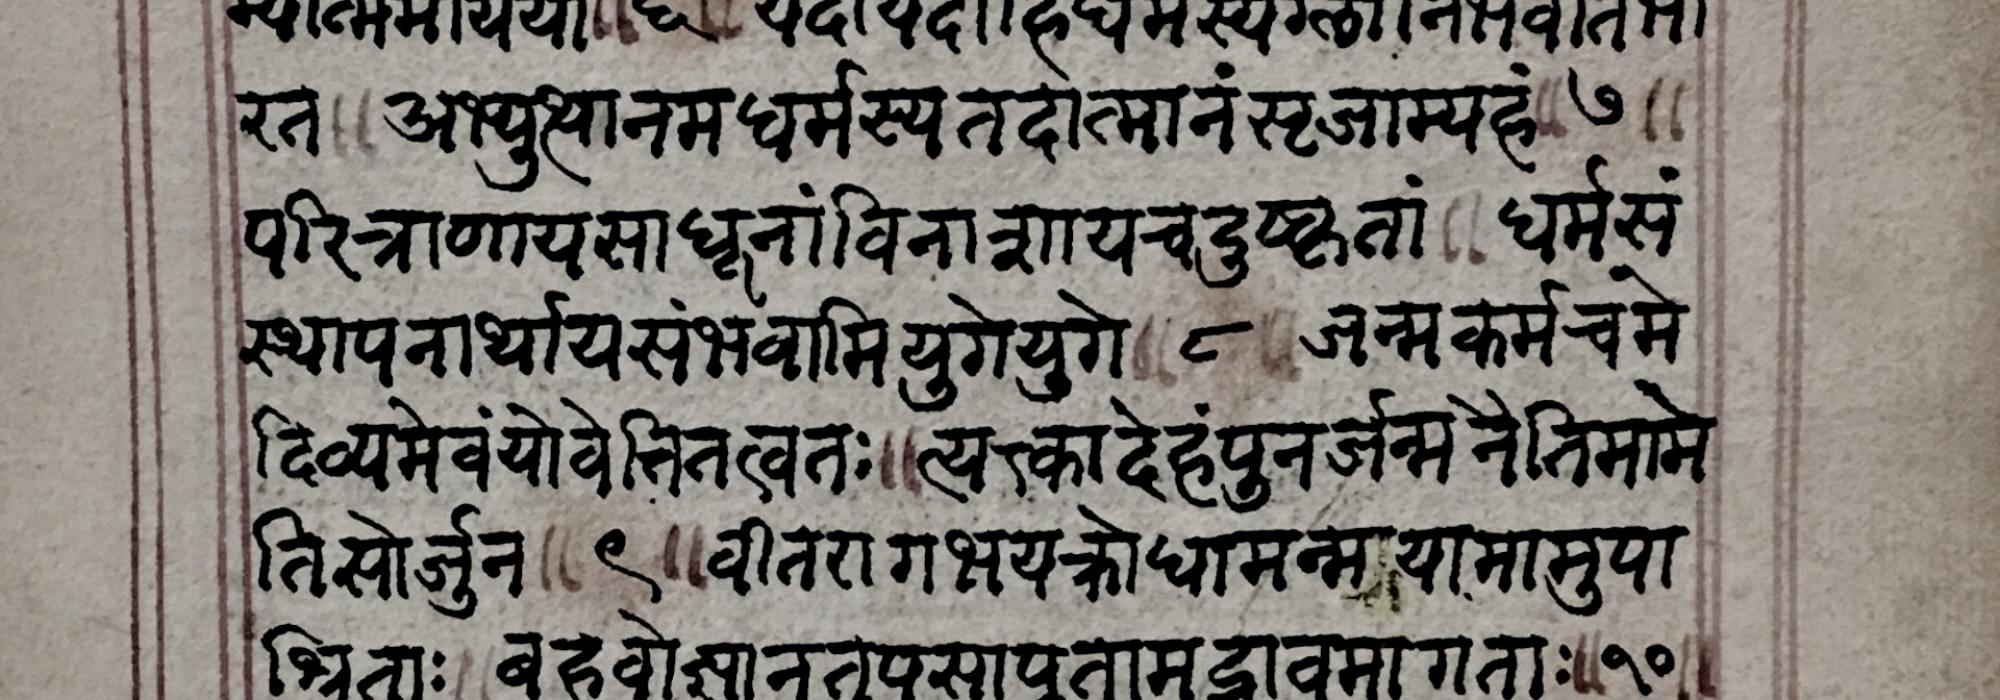 म्यात्ममायया ॥ ६ ॥ यदायदाहिधर्मस्यग्लानिर्भवतिभा
रत ॥ अभ्युत्थानमधर्मस्यतदात्मानंसृजाम्यहं ॥ ७ ॥
परित्राणायसाधूनांविनाशायचदुष्कृतां ॥ धर्मसं
स्थापनार्थायसंभवामियुगेयुगे ॥ ८ ॥ जन्मकर्मचमे
दिव्यमेवंयोवेत्तितत्वतः ॥ त्यक्त्कादेहंपुनर्जन्मनैतिमामे
तिसोर्जुन ॥ ९ ॥ वीतरागभयक्रोधामन्मयामामुपा
श्रिताः ॥ बहवोज्ञानतपसापूतामद्भावमागताः ॥ १० ॥